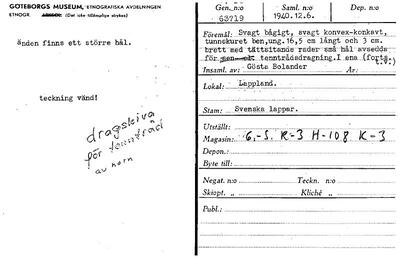 GÖTEBORGS MUSEUM, ETNOGRAFISKA AVDELNINGEN
ETNOGR. (Det icke tillämpliga strykes)
änden finns ett större hål.
teckning vänd!
dragskiva
för tenntråd
av horn
Gen. n:o
63719
Saml. n:o
1940.12.6.
Dep. n:o
Föremål: Svagt bågigt, svagt konvex-konkavt,
tunnskuret ben,ung.16,5 cm långt och 3 cm.
brett med tättsittande rader små hål avsedda
för tenntrådsdragning.I ena (forts.
t.v.)
Insaml. av: Gösta Bolander År:
Lokal: Lappland.
Stam: Svenska lappar.
Utställt:
Magasin: 6.-5. R-3 H-108 K-3
Depon.:
Byte till:
Negat. n:o Teckn. n:o
Skiopt. „ Kliché „
Publ.: